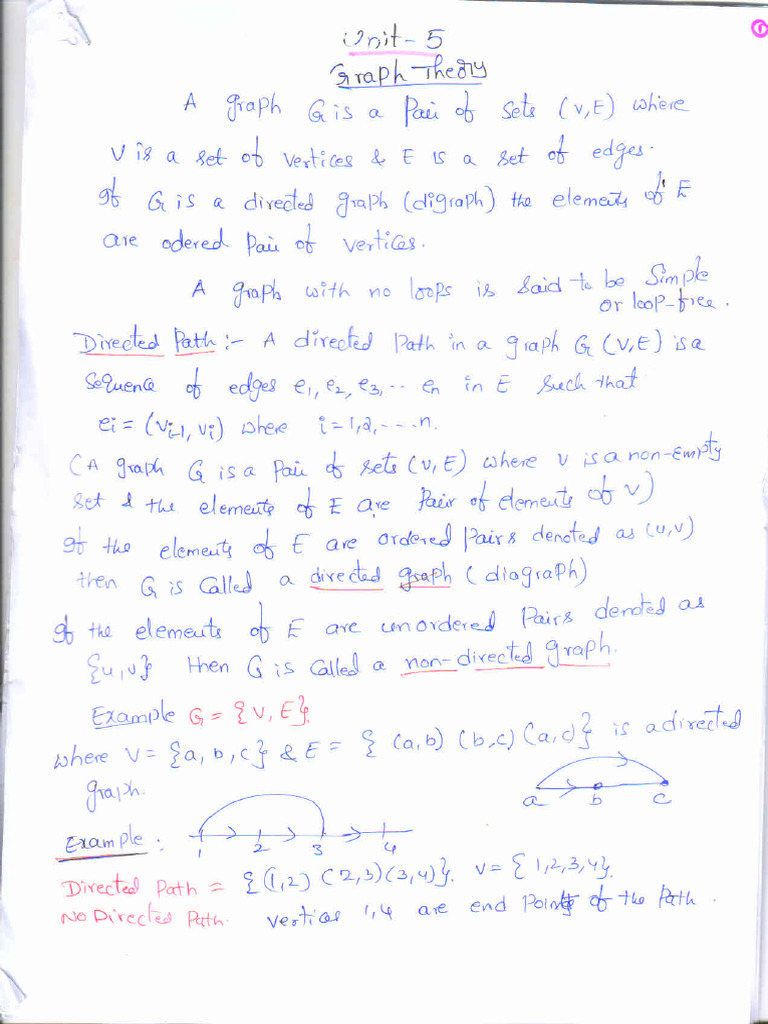 Unit-5
Graph Theory
A graph G is a Pair of sets (V,E) where
V is a set of vertices & E is a set of edges.
If G is a directed graph (digraph) the elements of E
are odered Pair of vertices.
A graph with no loops is said to be Simple
or loop-free.
Directed Path:- A directed Path in a graph G(V,E) is a
sequence of edges e1, e2, e3, -- en in E such that
ei = (vi-1, vi) where i = 1,2, ---- n.
(A graph G is a Pair of sets (V,E) where V is a non-empty
set & the elements of E are Pair of elements of V)
If the elements of E are ordered Pairs denoted as (u,v)
then G is called a directed graph (diagraph)
If the elements of E are unordered Pairs denoted as
{u,v} then G is called a non-directed graph.
Example G = {V, E}.
where V = {a, b, c} & E = { (a,b) (b,c) (a,c)} is a directed
graph.
a b c
Example :
1 2 3 4
Directed Path = {(1,2) (2,3) (3,4)}. V = {1,2,3,4}.
No Directed Path. vertices 1,4 are end Points of the Path.